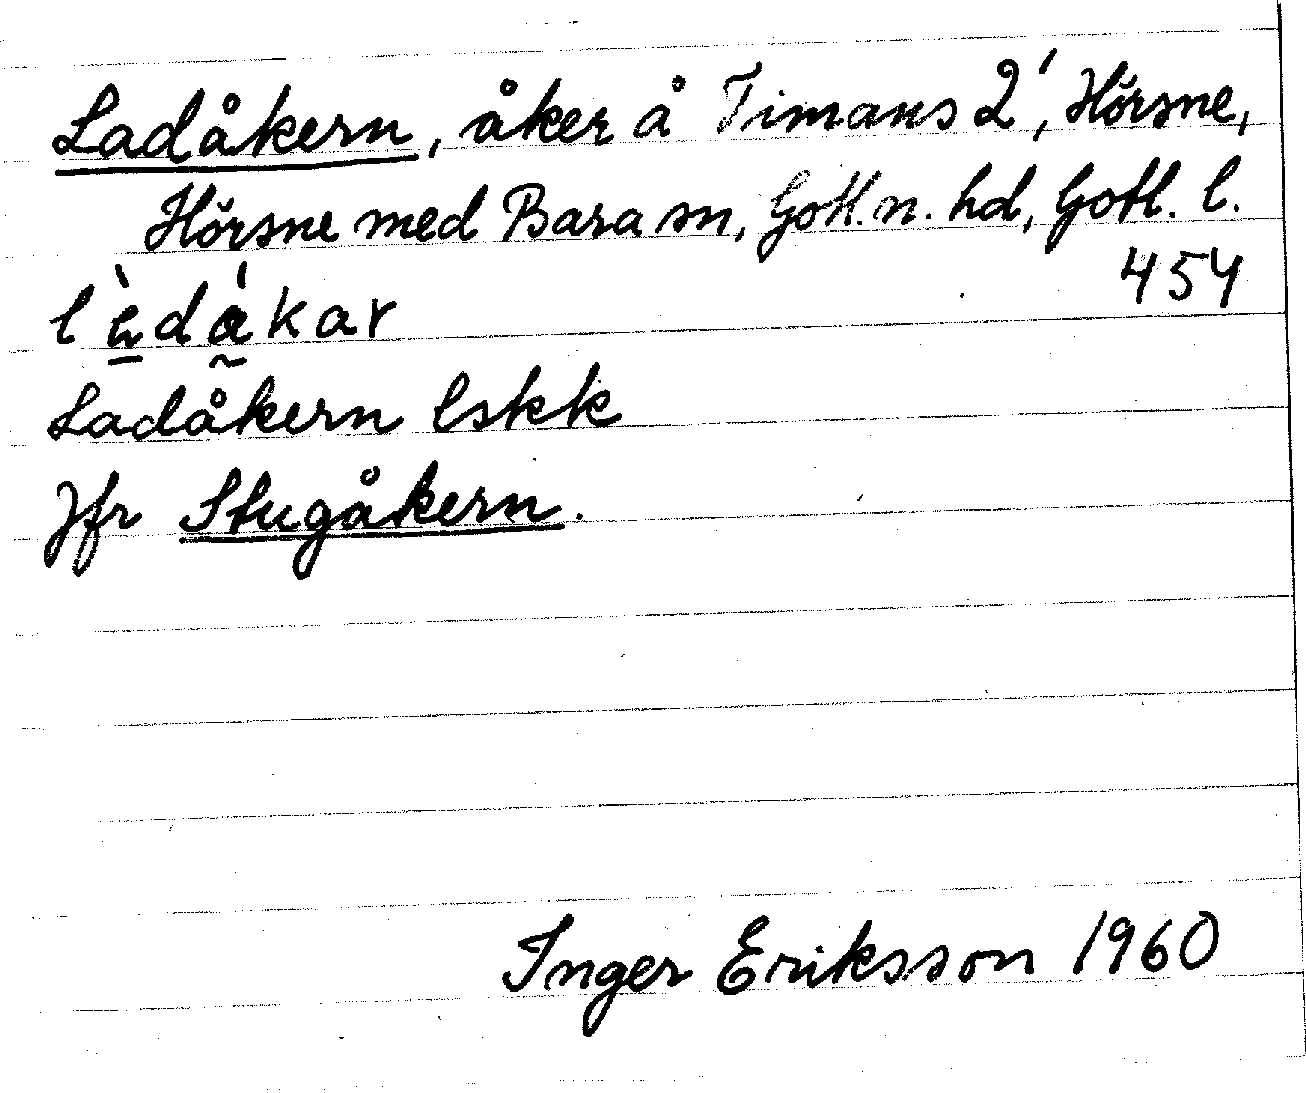 Ladåkern, åker å Timans 2', Hörsne,
Hörsne med Bara sn, Gotl. n. hd, Gotl. l.
454
Ladåkern lskk
Jfr Stugåkern.
Inger Eriksson 1960